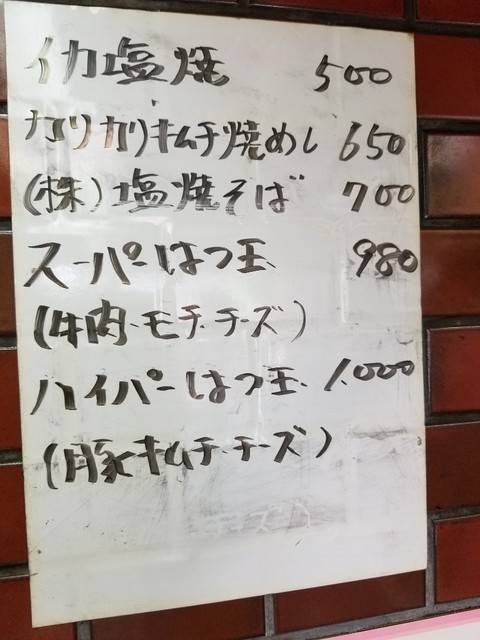 イカ塩焼 500
カリカリキムチ焼めし 650
(株)塩焼そば 700
スーパーはつ玉 980
(牛肉、モチ、チーズ)
ハイパーはつ玉 1.000
(豚キムチ、チーズ)